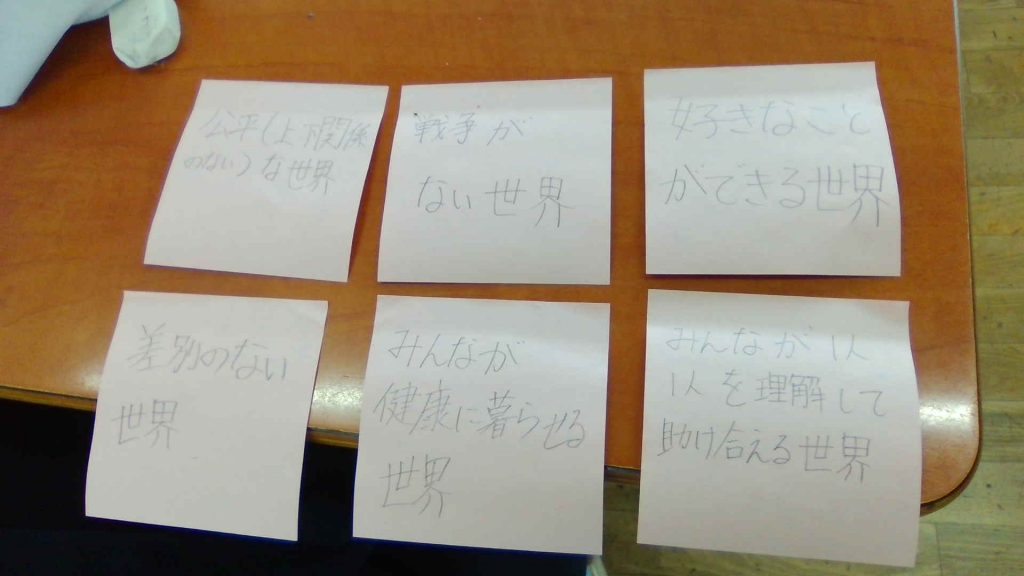 公平(上下関係
のない)な世界
戦争が
ない世界
好きなこと
ができる世界
差別のない
世界
みんなが
健康に暮らせる
世界
みんなが1人
1人を理解して
助け合える世界